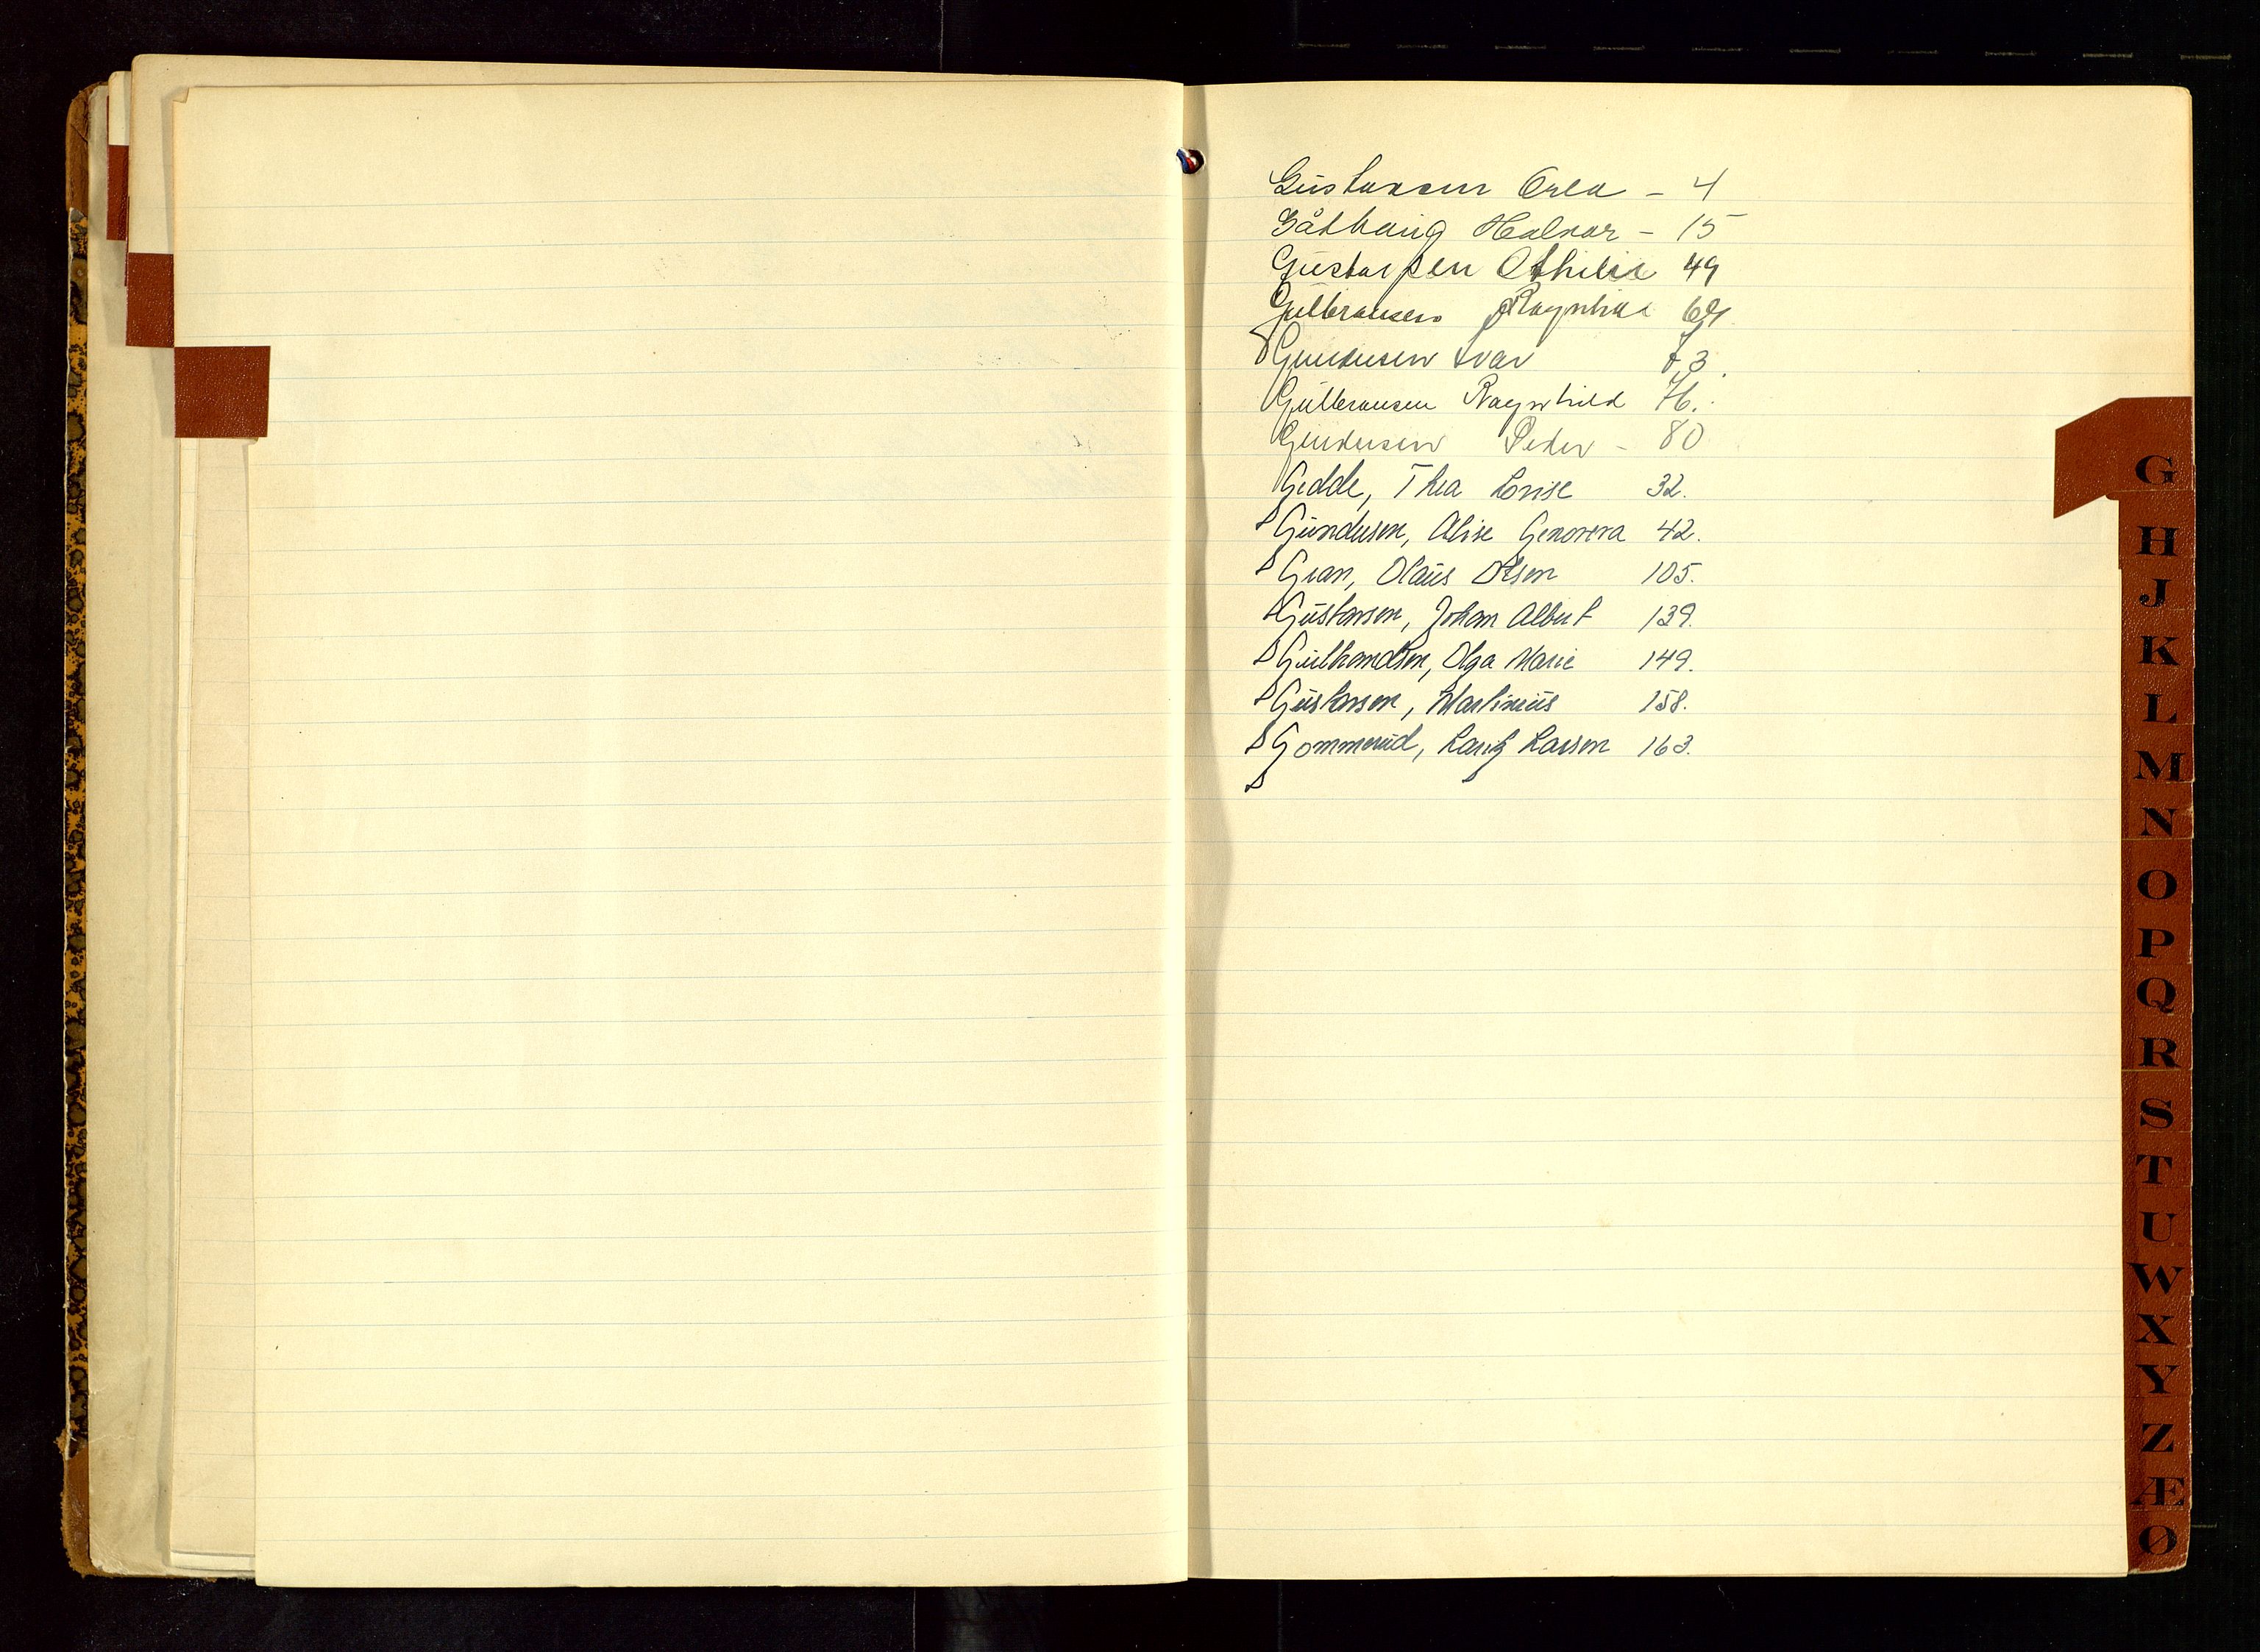 Gustavsen Orla - 4
Gåthaug Halvar - 15
Gustavsen Othilie 49
Gulbransen Ragnhild
Gundersen Ivar 73.
Gulbransen Ragnhild 76.
Gundersen Peder - 80
Gedde, Thea Lovise 32.
Gundersen, Alise Genoveva 42.
Gran, Olaus Olsen 105.
Gustavsen, Johan Albert 139.
Gulbrandsen, Olga Marie 149.
Gustavsen, Martinius 158.
Gommerud, Larsen 163.
G
H
J
K
L
M
N
O
P
Q
R
S
T
U
W
X
Y
Z
Æ
Ø